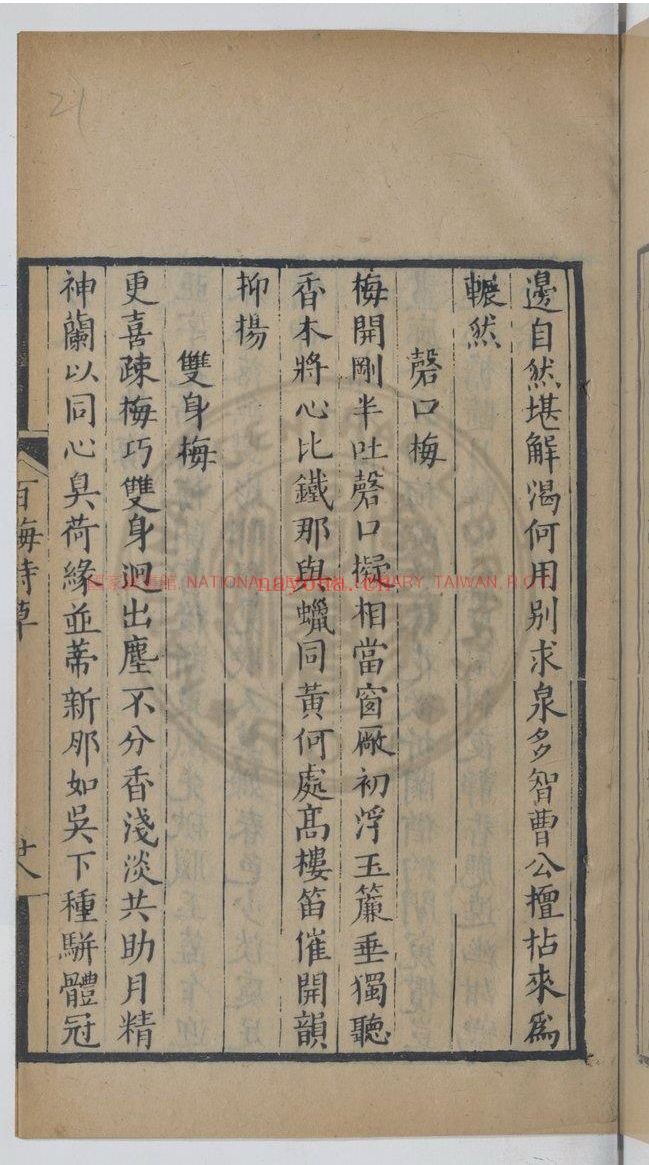 21
邊自然堪解渴何用别求泉多智曹公擅拈來爲
冁然
磬口梅
梅開剛半吐磬口擬相當窗厰初浮玉簾垂獨聽
香本將心比鐵那與蠟同黄何處髙樓笛催開韻
抑揚
雙身梅
更喜踈梅巧雙身迥出塵不分香淺淡共助月精
神蘭以同心臭荷緣並蒂新那如吳下種駢體冠
百梅詩草
廿八
國家圖書館, NATIONAL CENTRAL LIBRARY, TAIWAN, R.O.C.
nayona.cn